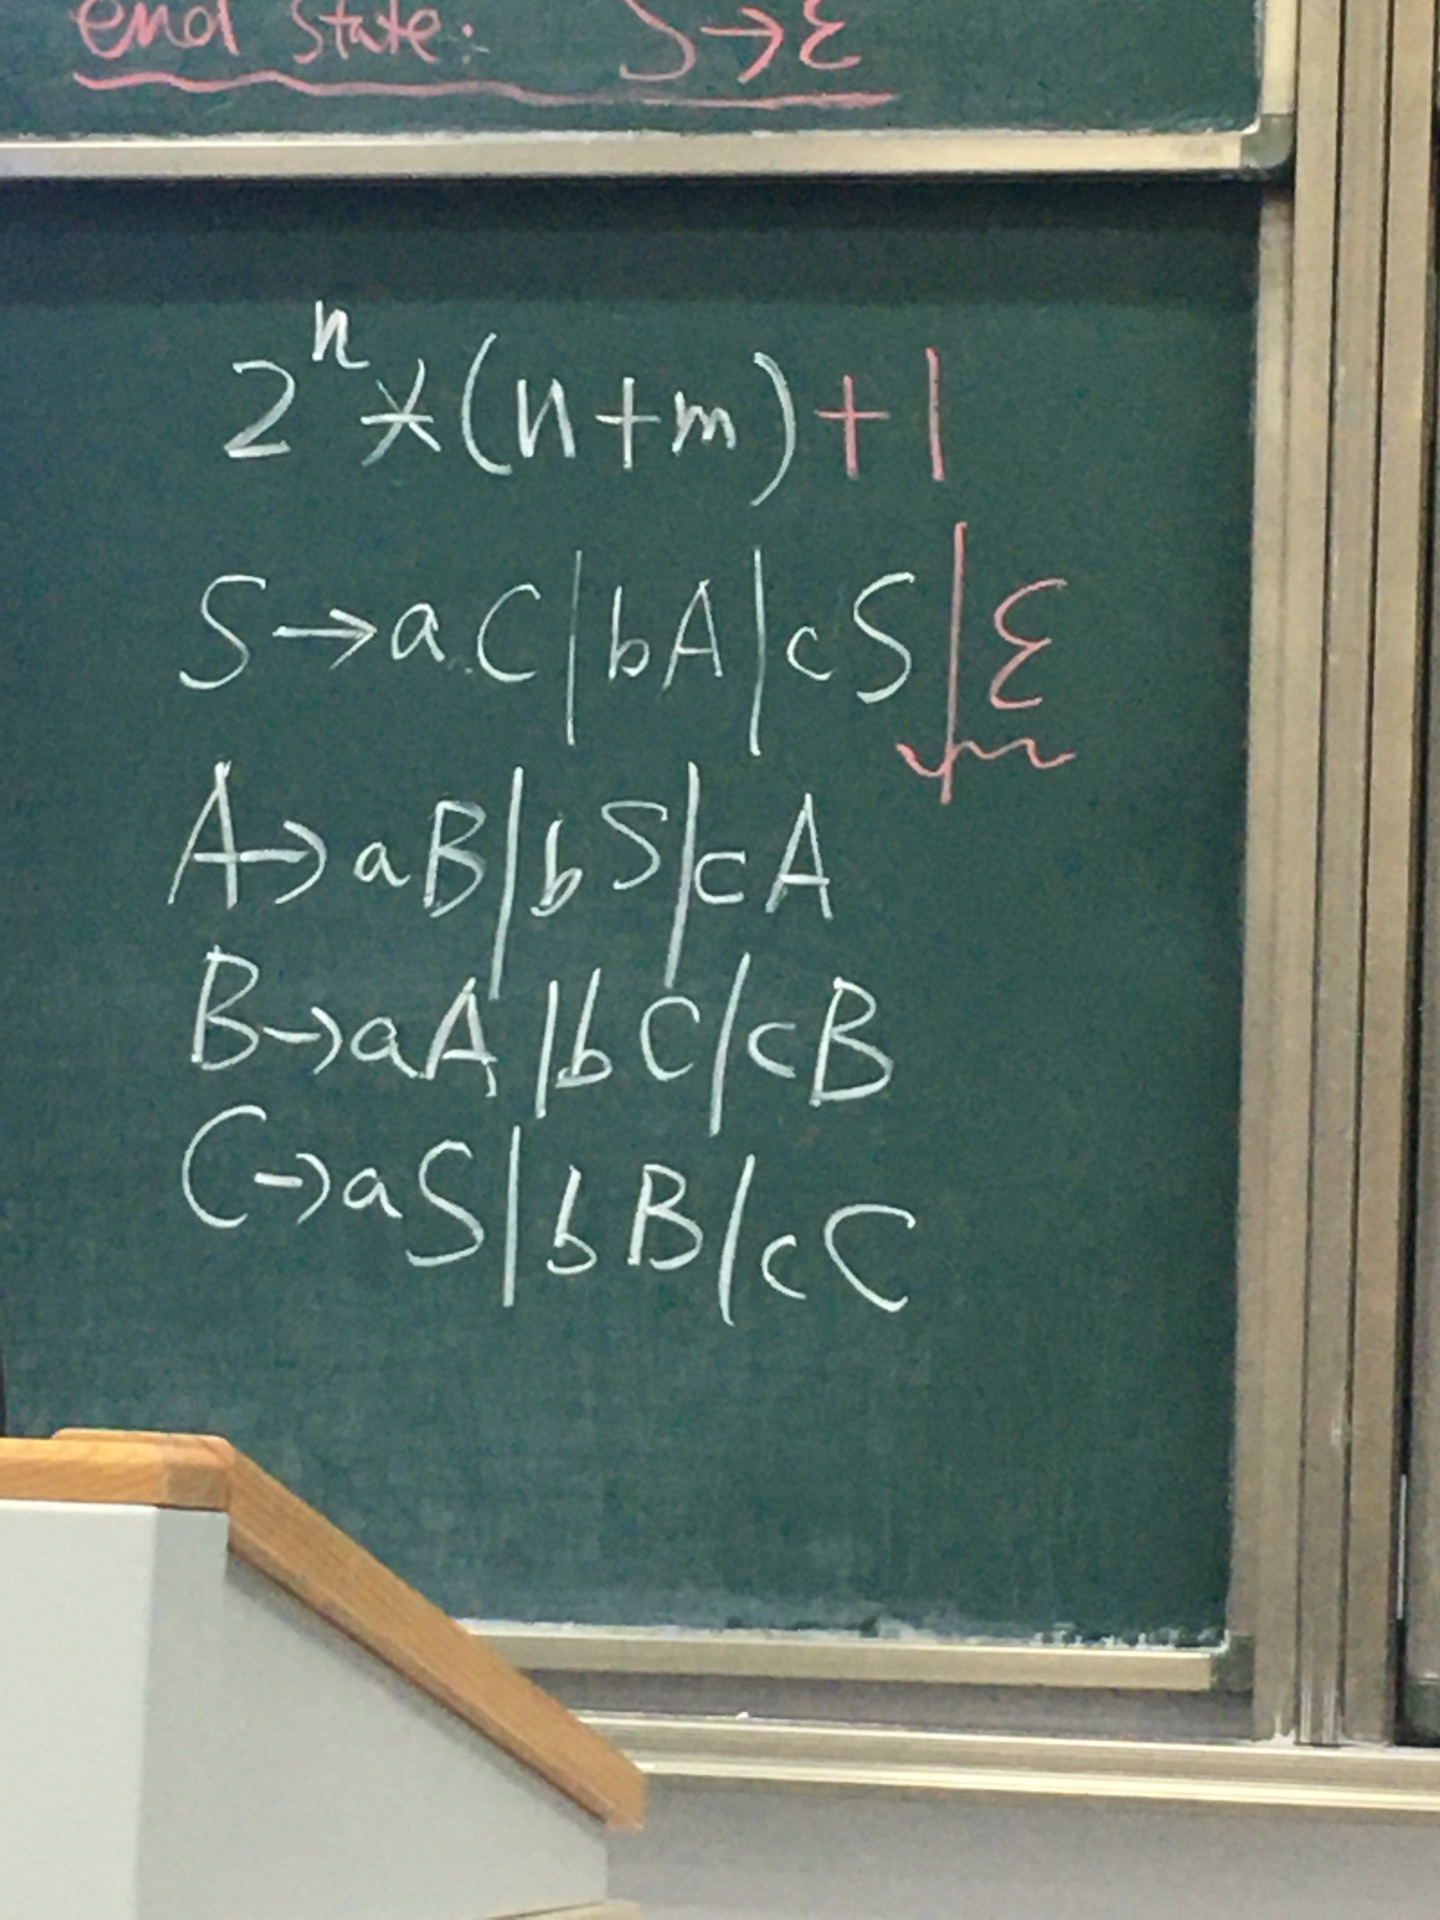 end state: S→ε
2^n*(n+m)+1
S→aC|bA|cS|ε
A→aB|bS|cA
B→aA|bC|cB
C→aS|bB|cC